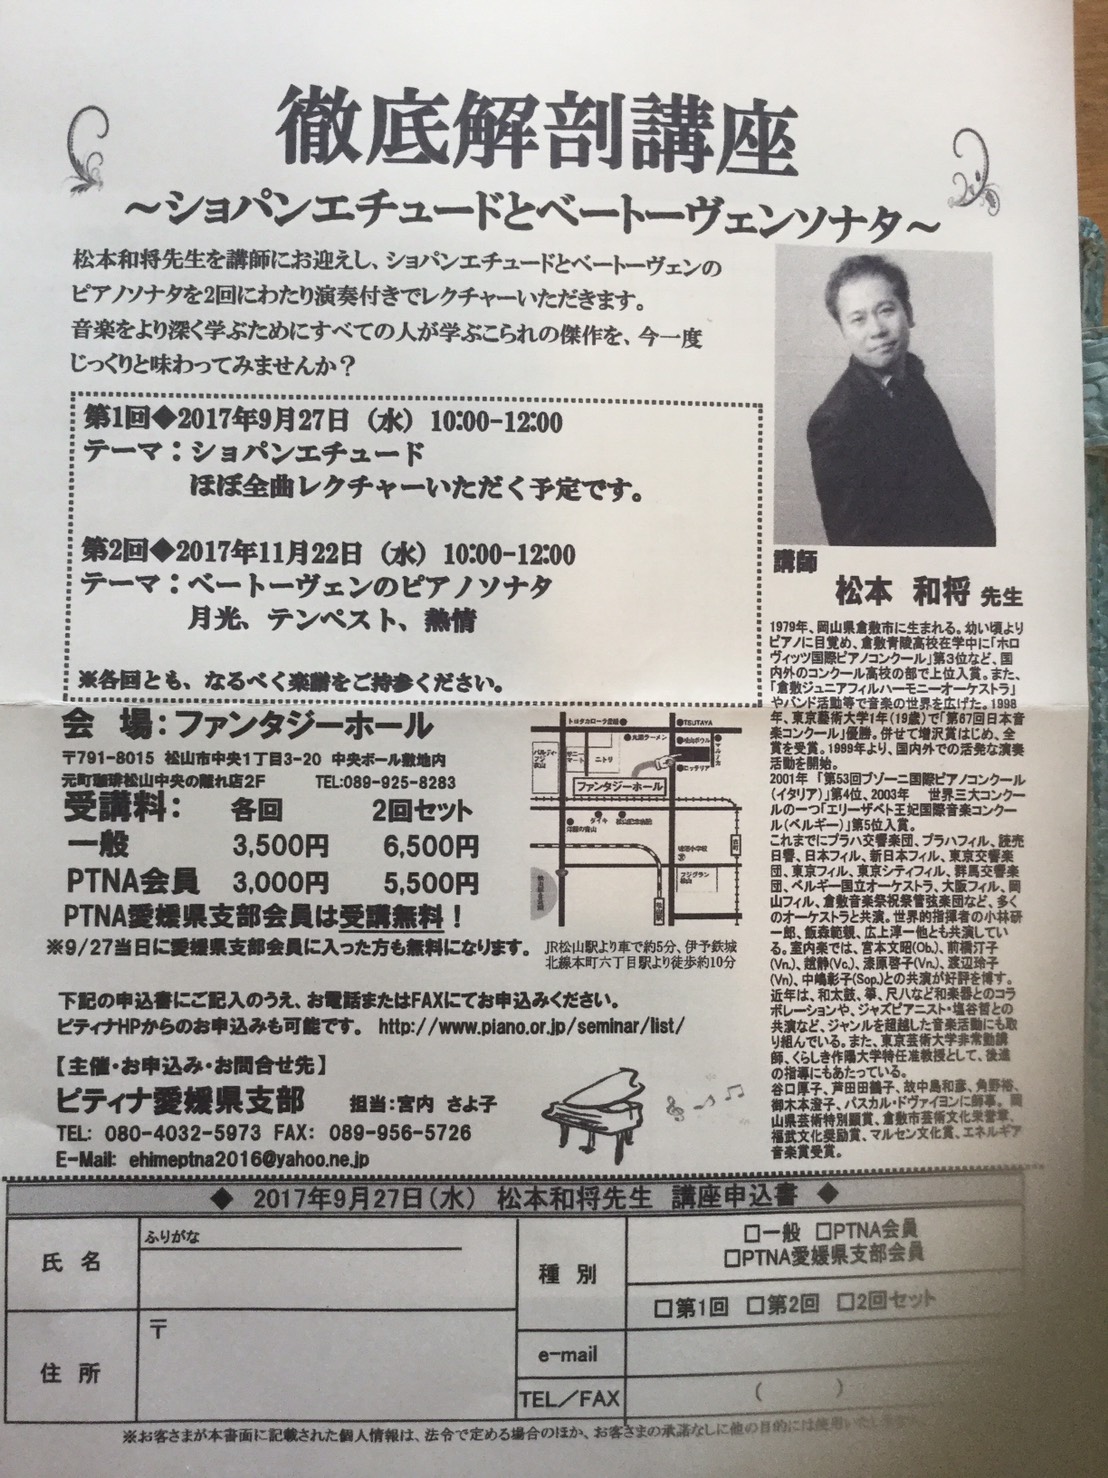 徹底解剖講座
～ショパンエチュードとベートーヴェンソナタ～
松本和将先生を講師にお迎えし、ショパンエチュードとベートーヴェンの
ピアノソナタを2回にわたり演奏付きでレクチャーいただきます。
音楽をより深く学ぶためにすべての人が学ぶこられの傑作を、今一度
じっくりと味わってみませんか？
第1回◆2017年9月27日（水）10:00-12:00
テーマ：ショパンエチュード
ほぼ全曲レクチャーいただく予定です。
第2回◆2017年11月22日（水）10:00-12:00
テーマ：ベートーヴェンのピアノソナタ
月光、テンペスト、熱情
※各回とも、なるべく楽譜をご持参ください。
講師
松本 和将 先生
1979年、岡山県倉敷市に生まれる。幼い頃より
ピアノに目覚め、倉敷青陵高校在学中に「ホロ
ヴィッツ国際ピアノコンクール」第3位など、国
内外のコンクール高校の部で上位入賞。また、
「倉敷ジュニアフィルハーモニーオーケストラ」
やバンド活動等で音楽の世界を広げた。1998
年、東京藝術大学1年(19歳)で「第67回日本音
楽コンクール」優勝。併せて増沢賞はじめ、全
賞を受賞。1999年より、国内外での活発な演奏
活動を開始。
2001年「第53回ブゾーニ国際ピアノコンクール
(イタリア)」第4位、2003年 世界三大コンクー
ルの一つ「エリーザベト王妃国際音楽コンクー
ル(ベルギー)」第5位入賞。
これまでにプラハ交響楽団、プラハフィル、読売
日響、日本フィル、新日本フィル、東京交響楽
団、東京フィル、東京シティフィル、群馬交響楽
団、ベルギー国立オーケストラ、大阪フィル、岡
山フィル、倉敷音楽祭祝祭管弦楽団など、多く
のオーケストラと共演。世界的指揮者の小林研
一郎、飯森範親、広上淳一他とも共演してい
る。室内楽では、宮本文昭(Ob.)、前橋汀子
(Vn.)、趙静(Vc.)、漆原啓子(Vn.)、渡辺玲子
(Vn)、中嶋彰子(Sop.)との共演が好評を博す。
近年は、和太鼓、箏、尺八など和楽器とのコラ
ボレーションや、ジャズピアニスト・塩谷哲との
共演など、ジャンルを超越した音楽活動にも取
り組んでいる。また、東京芸術大学非常勤講
師、くらしき作陽大学特任准教授として、後進
の指導にもあたっている。
谷口厚子、芦田田鶴子、故中島和彦、角野裕、
御木本澄子、パスカル・ドヴァイヨンに師事。岡
山県芸術特別顕賞、倉敷市芸術文化栄誉章、
福武文化奨励賞、マルセン文化賞、エネルギア
音楽賞受賞。
会 場：ファンタジーホール
〒791-8015 松山市中央1丁目3-20 中央ボール敷地内
元町珈琲松山中央の離れ店2F TEL:089-925-8283
受講料： 各回 2回セット
一般 3,500円 6,500円
PTNA会員 3,000円 5,500円
PTNA愛媛県支部会員は受講無料！
※9/27当日に愛媛県支部会員に入った方も無料になります。
トヨタカローラ愛媛
TSUTAYA
丸源ラーメン
松山ボウル
マルナカ
パルティーフジ衣山
サニーマート
ニトリ
ロッテリア
ファンタジーホール
ダイキ
洋服の青山
フジグラン松山
古町
JR松山駅より車で約5分、伊予鉄城
北線本町六丁目駅より徒歩約10分
下記の申込書にご記入のうえ、お電話またはFAXにてお申込みください。
ピティナHPからのお申込みも可能です。 http://www.piano.or.jp/seminar/list/
【主催・お申込み・お問合せ先】
ピティナ愛媛県支部 担当：宮内 さよ子
TEL: 080-4032-5973 FAX: 089-956-5726
E-Mail: ehimeptna2016@yahoo.ne.jp
◆ 2017年9月27日(水) 松本和将先生 講座申込書 ◆
氏 名
ふりがな
種 別
□一般 □PTNA会員
□PTNA愛媛県支部会員
□第1回 □第2回 □2回セット
住 所
〒
e-mail
TEL／FAX
( )
※お客さまが本書面に記載された個人情報は、法令で定める場合のほか、お客さまの承諾なしに他の目的には使用いたしません